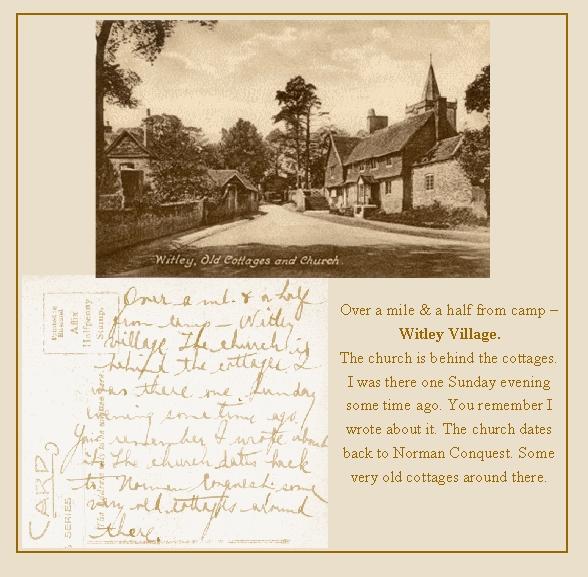 Witley, Old Cottages and Church.
Over a mile & a half from camp –
Witley Village.
The church is behind the cottages.
I was there one Sunday evening
some time ago. You remember I
wrote about it. The church dates
back to Norman Conquest. Some
very old cottages around there.
Printed in
Affix
Halfpenny
Stamp.
Over a ml. & a half
from camp – Witley
village The church is
behind the cottages I
was there one Sunday
evening some time ago.
You remember I wrote about
it. The church dates back
to Norman Conquest. some
very old cottages around
there.
CARD
SERIES